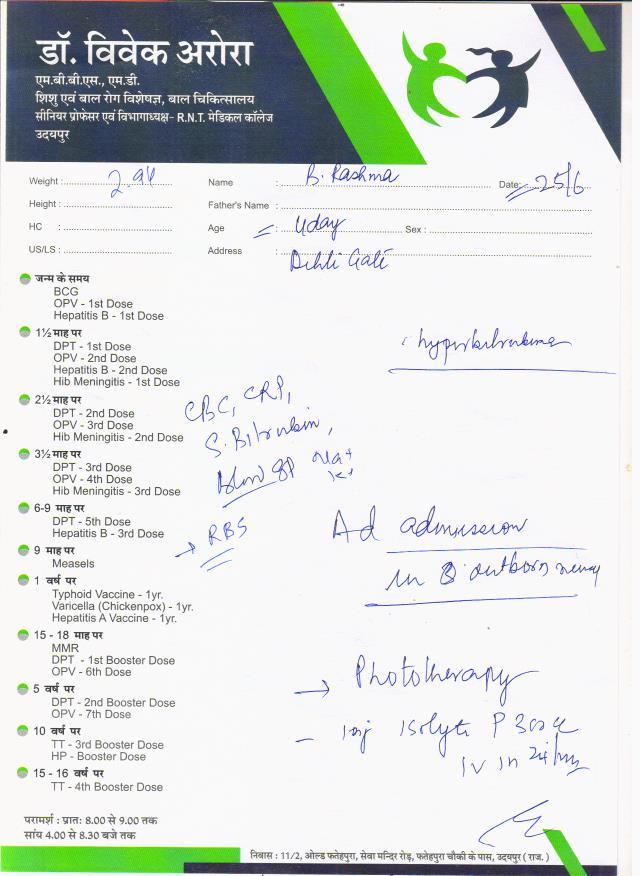 डॉ. विवेक अरोरा
एम.बी.बी.एस., एम.डी.
शिशु एवं बाल रोग विशेषज्ञ, बाल चिकित्सालय
सीनियर प्रोफेसर एवं विभागाध्यक्ष- R.N.T. मेडिकल कॉलेज
उदयपुर
Weight : 2.94 Name : B. Rashma Date: 25/6
Height : Father's Name :
HC : Age : 4day Sex :
US/LS : Address : Dehli Gate
जन्म के समय
BCG
OPV - 1st Dose
Hepatitis B - 1st Dose
1½ माह पर
DPT - 1st Dose
OPV - 2nd Dose
Hepatitis B - 2nd Dose
Hib Meningitis - 1st Dose
2½ माह पर
DPT - 2nd Dose
OPV - 3rd Dose
Hib Meningitis - 2nd Dose
3½ माह पर
DPT - 3rd Dose
OPV - 4th Dose
Hib Meningitis - 3rd Dose
6-9 माह पर
DPT - 5th Dose
Hepatitis B - 3rd Dose
9 माह पर
Measels
1 वर्ष पर
Typhoid Vaccine - 1yr.
Varicella (Chickenpox) - 1yr.
Hepatitis A Vaccine - 1yr.
15 - 18 माह पर
MMR
DPT - 1st Booster Dose
OPV - 6th Dose
5 वर्ष पर
DPT - 2nd Booster Dose
OPV - 7th Dose
10 वर्ष पर
TT - 3rd Booster Dose
HP - Booster Dose
15 - 16 वर्ष पर
TT - 4th Booster Dose
CBC, CRP,
S. Bilirubin,
Blood gp Na+
K+
RBS
Ad admission
in outborn
Phototherapy
Inj Isolyte P 300
IV in 24 hrs
परामर्श : प्रातः 8.00 से 9.00 तक
सांय 4.00 से 8.30 बजे तक
निवास : 11/2, ओल्ड फतेहपुरा, सेवा मन्दिर रोड़, फतेहपुरा चौकी के पास, उदयपुर ( राज. )